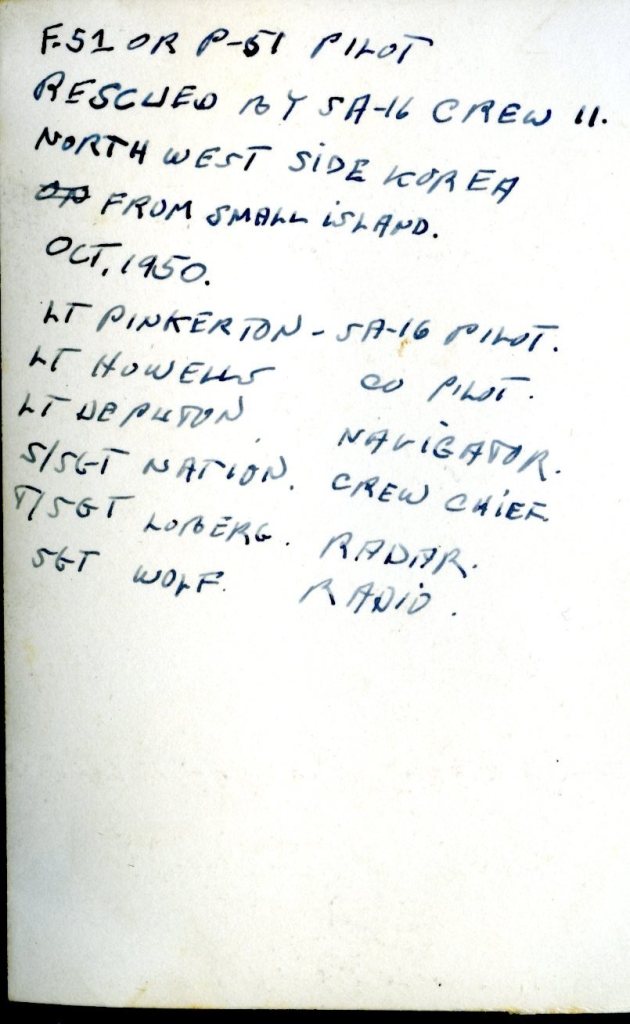 F-51 OR P-51 PILOT
RESCUED BY SA-16 CREW 11.
NORTH WEST SIDE KOREA
FROM SMALL ISLAND.
OCT, 1950.
LT PINKERTON - SA-16 PILOT.
LT HOWELLS CO PILOT.
LT DEPUTON NAVIGATOR.
S/SGT NATION. CREW CHIEF
T/SGT LOBERG. RADAR.
SGT WOLF. RADIO.